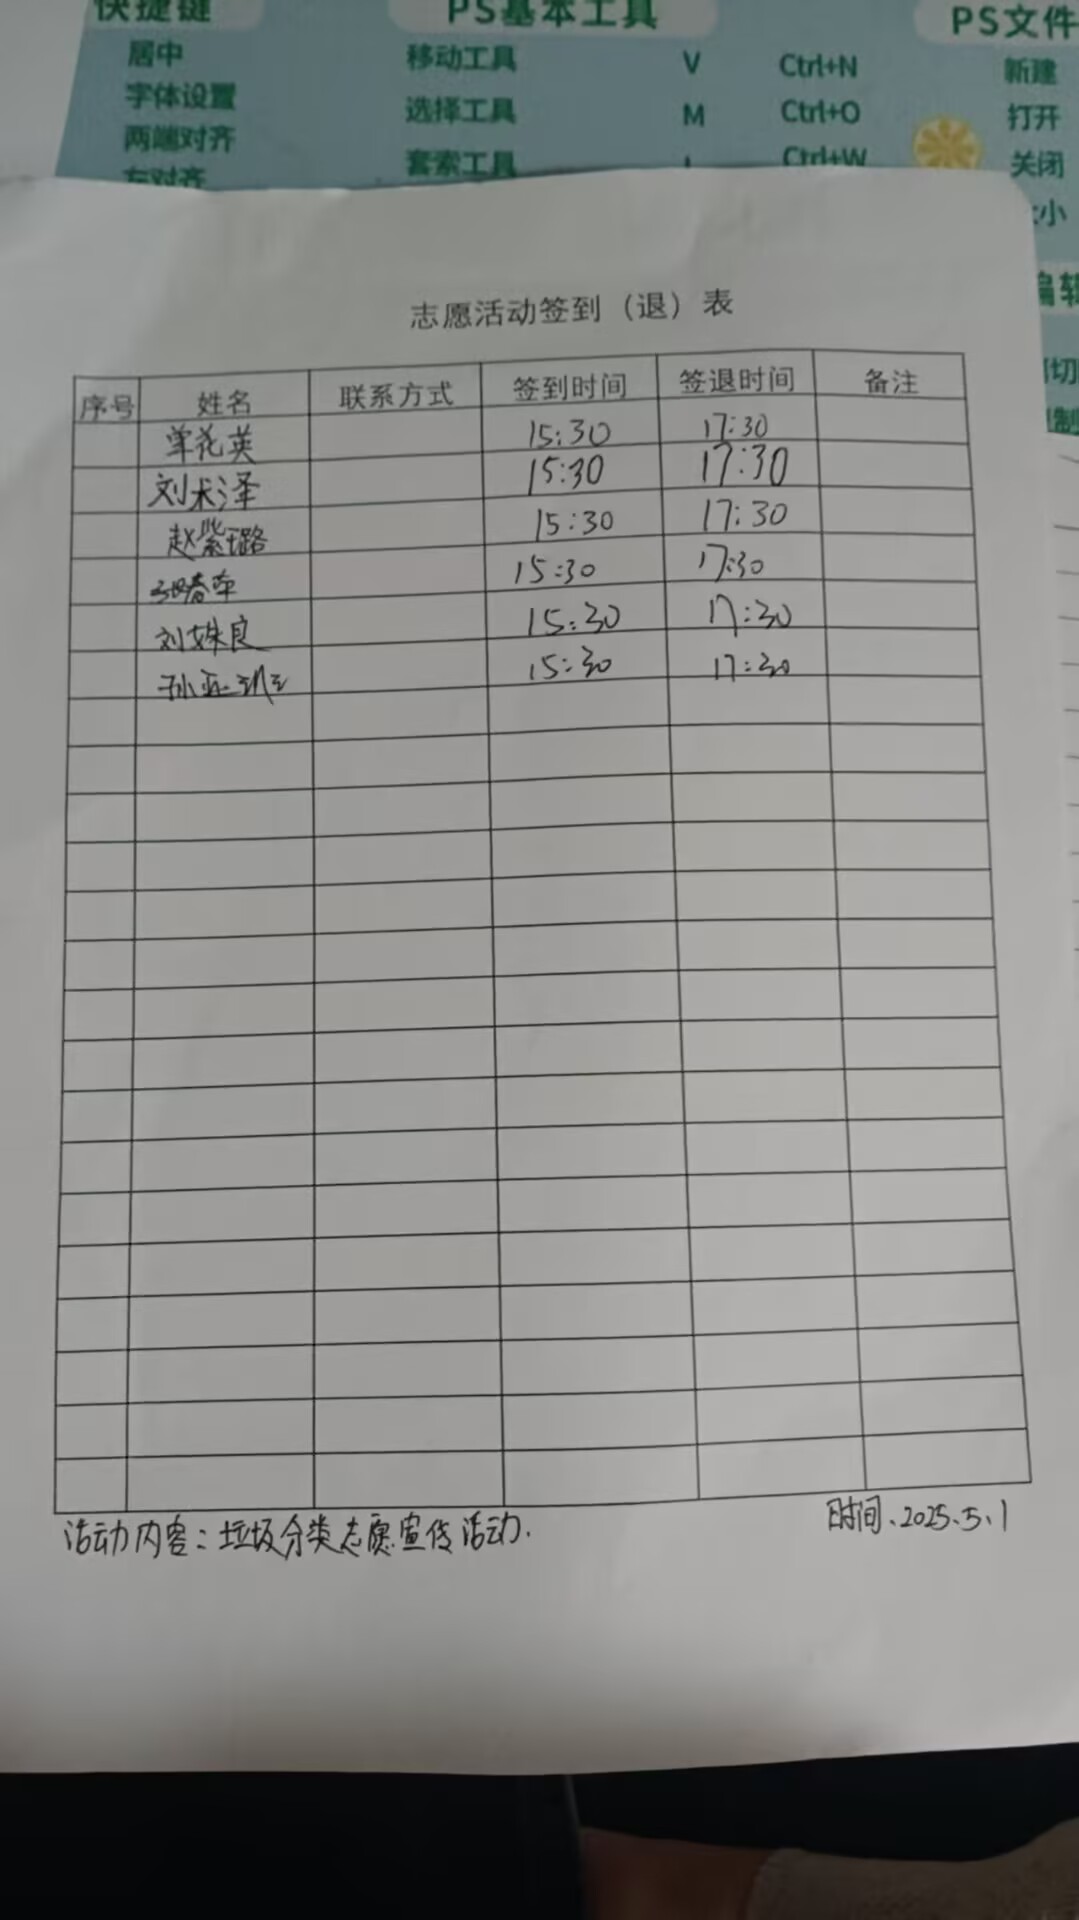 快捷键 PS基本工具 PS文件
居中 移动工具 V Ctrl+N 新建
字体设置 选择工具 M Ctrl+O 打开
两端对齐 套索工具 L Ctrl+W 关闭
左对齐
小
编辑
切
制
志愿活动签到（退）表
序号 姓名 联系方式 签到时间 签退时间 备注
单花英 15:30 17:30
刘术泽 15:30 17:30
赵紫璐 15:30 17:30
张春苹 15:30 17:30
刘姝良 15:30 17:30
孙亚 15:30 17:30
活动内容：垃圾分类志愿宣传活动.
时间、2025.5.1